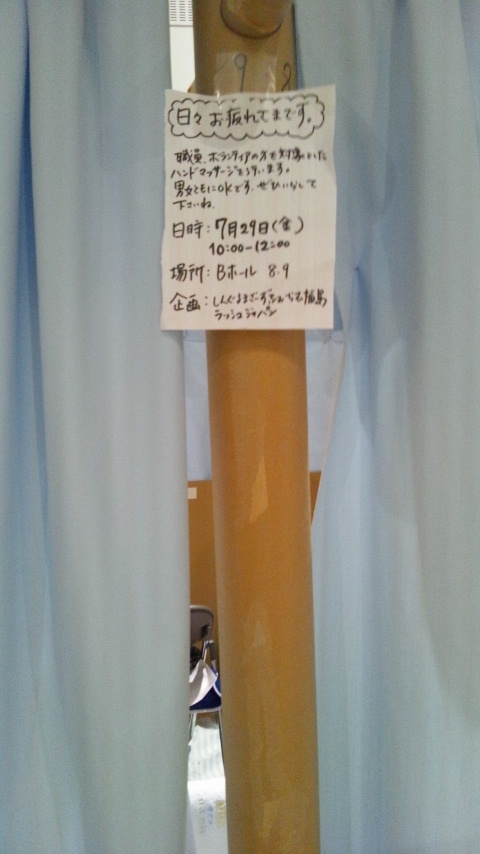 9 8
日々お疲れさまです。
職員、ボランティアの方を対象とした
ハンドマッサージを行います。
男女ともにOKです。ぜひいらして
下さいね。
日時:7月29日(金)
10:00-12:00
場所:Bホール 8.9
企画:しんぐるまざーずふぉーらむ福島
ラッシュジャパン